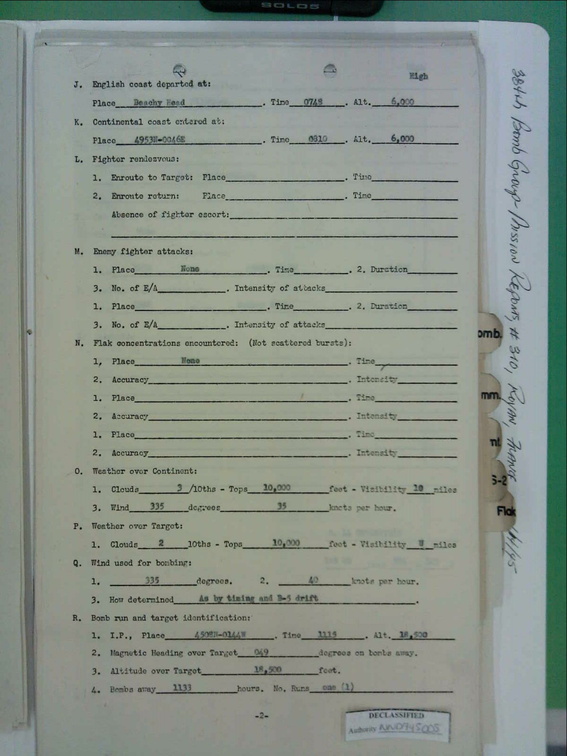 SOLOS
High
J. English coast departed at:
Place Beachy Head . Time 0748 . Alt. 6,000
K. Continental coast entered at:
Place 4953N-0046E . Time 0810 . Alt. 6,000
L. Fighter rendezvous:
1. Enroute to Target: Place . Time
2. Enroute return: Place . Time
Absence of fighter escort:
M. Enemy fighter attacks:
1. Place None . Time . 2. Duration
3. No. of E/A . Intensity of attacks
1. Place . Time . 2. Duration
3. No. of E/A . Intensity of attacks
N. Flak concentrations encountered: (Not scattered bursts):
1, Place None . Time
2. Accuracy . Intensity
1. Place . Time
2. Accuracy . Intensity
1. Place . Time
2. Accuracy . Intensity
O. Weather over Continent:
1. Clouds 3 /10ths - Tops 10,000 feet - Visibility 10 miles
3. Wind 335 degrees 35 knots per hour.
P. Weather over Target:
1. Clouds 2 10ths - Tops 10,000 feet - Visibility 8 miles
Q. Wind used for bombing:
1. 335 degrees. 2. 40 knots per hour.
3. How determined As by timing and B-5 drift .
R. Bomb run and target identification:
1. I.P., Place Time 1115 . Alt. 18,500
2. Magnetic Heading over Target 049 degrees on bombs away.
3. Altitude over Target 18,500 feet.
4. Bombs away 1133 hours. No. Runs one (1)
-2-
DECLASSIFIED
Authority
384th Bomb Group - Mission Reports, # 310, Royan, France
omb.
mm.
nt
S-2
Flak